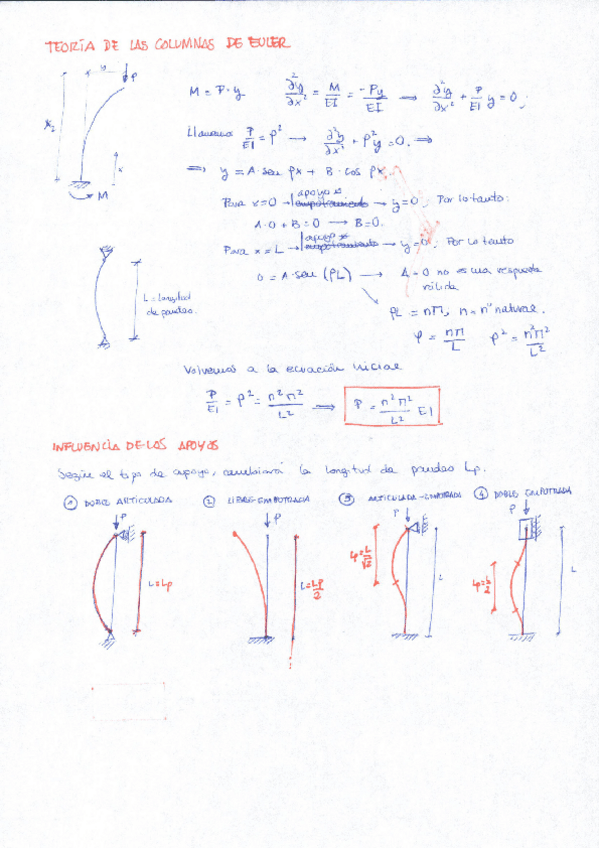 TEORÍA DE LAS COLUMNAS DE EULER
y
P
x
M
M = P·y   ∂²y/∂x² = M/EI = -Py/EI → ∂²y/∂x² + P/EI y = 0;
Llamamos P/EI = ρ² → ∂²y/∂x² + ρ²y = 0. ⇒
⇒ y = A·sen ρx + B·cos ρx.
Para x=0 → apoyo → y=0; Por lo tanto:
A·0 + B = 0 → B=0.
Para x=L → apoyo → y=0; Por lo tanto
0 = A·sen (ρL) → A=0 no es una respuesta
válida
L = longitud
de pandeo.
ρL = nΠ; n = nº natural.
ρ = nΠ/L   ρ² = n²Π²/L²
Volvemos a la ecuación inicial
P/EI = ρ² = n²Π²/L² ⇒ P = n²Π²/L² EI
INFLUENCIA DE LOS APOYOS
Según el tipo de apoyo, cambiará la longitud de pandeo Lp.
① DOBLE ARTICULADA   ② LIBRE-EMPOTRADA   ③ ARTICULADA-EMPOTRADA   ④ DOBLE EMPOTRADA
P   P   P   P
L=Lp   L=Lp/2   Lp=L/√2   L   Lp=L/2   L